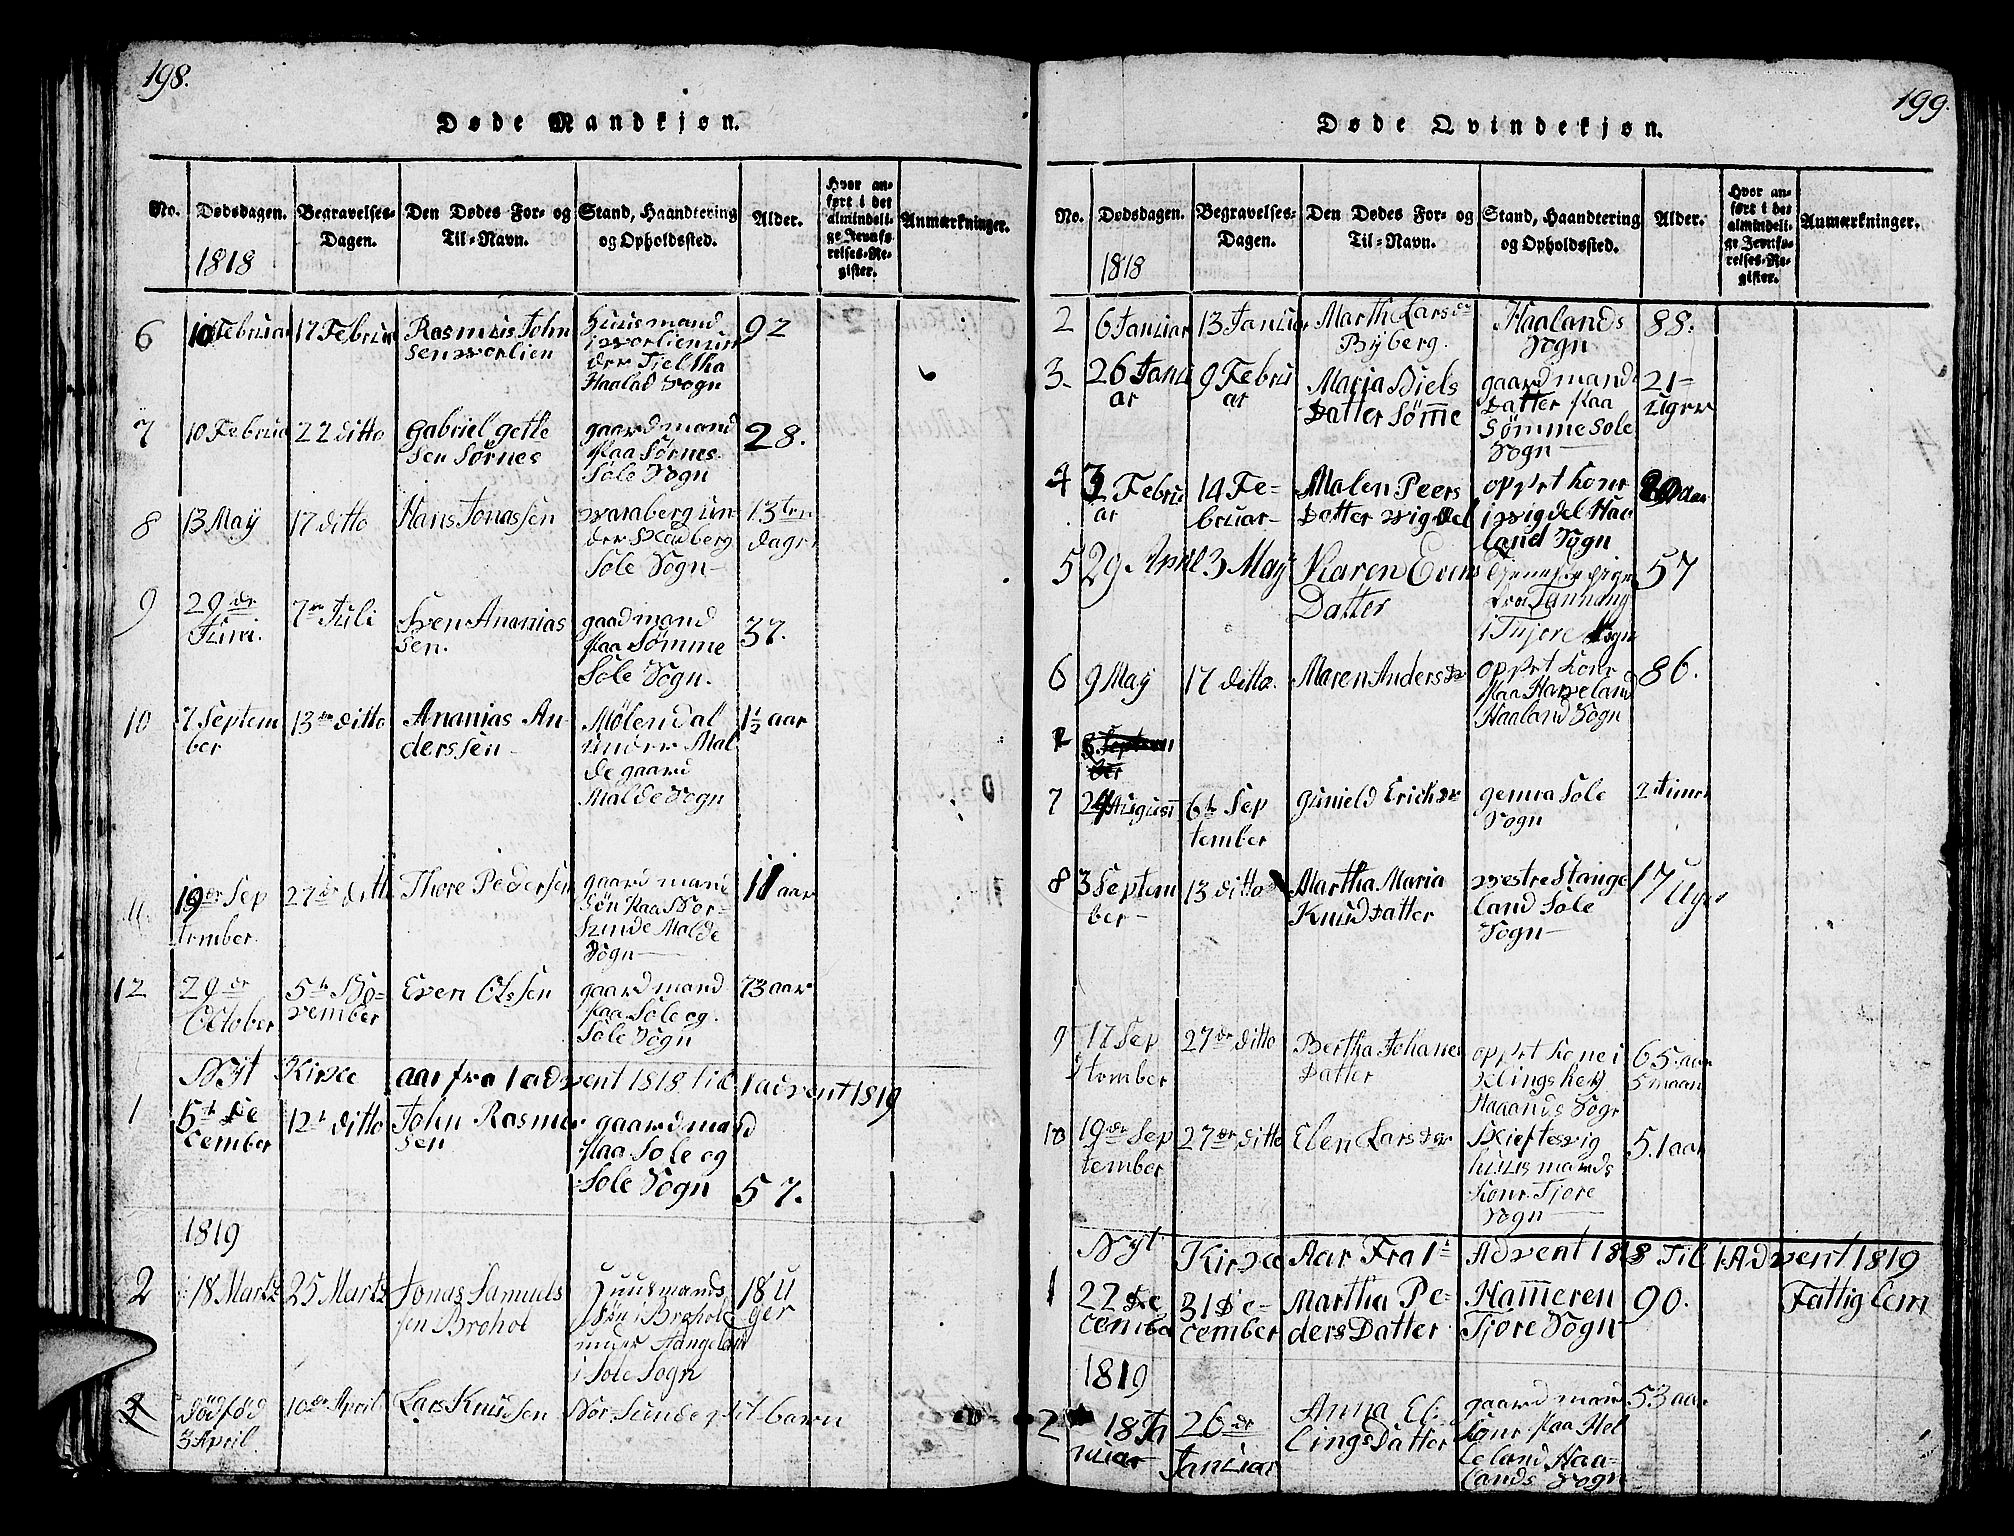 198.
Døde Mandkjøn.
No.
Dødsdagen.
1818
Begravelses-
Dagen.
Den Dødes For- og
Til-Navn.
Stand, Haandtering
og Opholdssted.
Alder.
Hvor an-
ført i det
almindeli-
ge Jevnfø-
relses-Re-
gister.
Anmærkninger.
6
10 Februar
17 Februar
Rasmus John
sen worlien
huusmand
i worlien un
der Tieltha
Haalad Sogn
92
7
10 Februa
22 ditto
gabriel gette
sen Sørnes
gaardmand
paa Sørnes
Sole Sogn
28.
8
13 Maÿ
17 ditto
Hans Jonassen
waraberg un-
der Stadberg
Sole Sogn
13ten
dager
9
29de
Juni.
7de Juli
Sven Ananias
sen.
gaadmand
paa Sømme
Sole Sogn.
37.
10
7 Septem
ber
13de ditto
Ananias An-
derssen
Mølendal
under Mal
de gaard
Malde Sogn
1½ aar
11.
19de Sep
tember
27de ditto
Thore Pedersen
gaard mand
Søn paa Nor-
sunde Malde
Sogn
11 aar
12
29de
October
5te No-
vember
Even Olssen
gaard mand
paa Sole og
Sole Sogn
73 aar
Nyt Kirke aar fra 1 advent 1818 til 1 advent 1819
1
5te De
cember
12te ditto
John Rasmus
sen
gaardmand
paa Sole og
Sole Sogn
57.
1819
2
18 Martz
25 Martz
Jonas Samuels
sen Brohol
Huusmands
Søn i Brohole
under Stangeland
i Sole Sogn
18 U
ger
dødfød
3 April.
10de April
Lars Knudsen
Nor Sunde
barn
199.
Døde Qvindekjøn.
No.
Dødsdagen.
1818
Begravelses-
Dagen.
Den Dødes For- og
Til-Navn.
Stand, Haandtering
og Opholdssted.
Alder.
Hvor an-
ført i det
almindeli-
ge Jevnfø-
relses-Re-
gister.
Anmærkninger.
2
6 Januar
13 Januar
Marth Larsda
Byberg.
Haalands
Sogn
88.
3.
26 Janu
ar
9 Febru
ar
Maria Niels
Datter Sømme
gaard mands
Datter paa
Sømme Sole
Sogn
21
Uger
4
Februa
ar
14 Fe-
bruar
Malen Peers
Datter wigdel
oppst kone
i wigdel Haa
land Sogn
5
29 April
3 Maÿ
Karen Evens
Datter
Tjenste pige
i Tjore Sogn
57
6
9 Maÿ
17 ditto
Maren Andersda
oppst kone
paa Harveland
Haaland Sogn
86.
7
24 August
6te Sep
tember
gunield Erichsda
gemra Sole
Sogn
2 timer
8
3 Septem
ber
13 ditto
Martha Maria
Knudsdatter
westre Stange
land Sole
Sogn
17 Uger
9
17 Sep
tember
27de ditto
Bertha Johanes
Datter
oppst kone i
Haaands Sogn
65 aar
5 maan
10
19de Sep
tember
27de ditto
Elen Larsdar
Skieftesvig
huusmands
kone Tjore
Sogn
51 aar
Nyt Kirke Aar Fra 1te Advent 1818 Til 1 Advent 1819
1
22 De
cember
31 De-
cember
Martha Pe-
ders Datter
Hammeren
Tjore Sogn
90.
Fattig lem
1819
2
18 Ja
nuar
26de
Januar
Anna El
lings Datter
gaard mand
kone paa Hel
leland Haa-
lands Sogn
53 aar